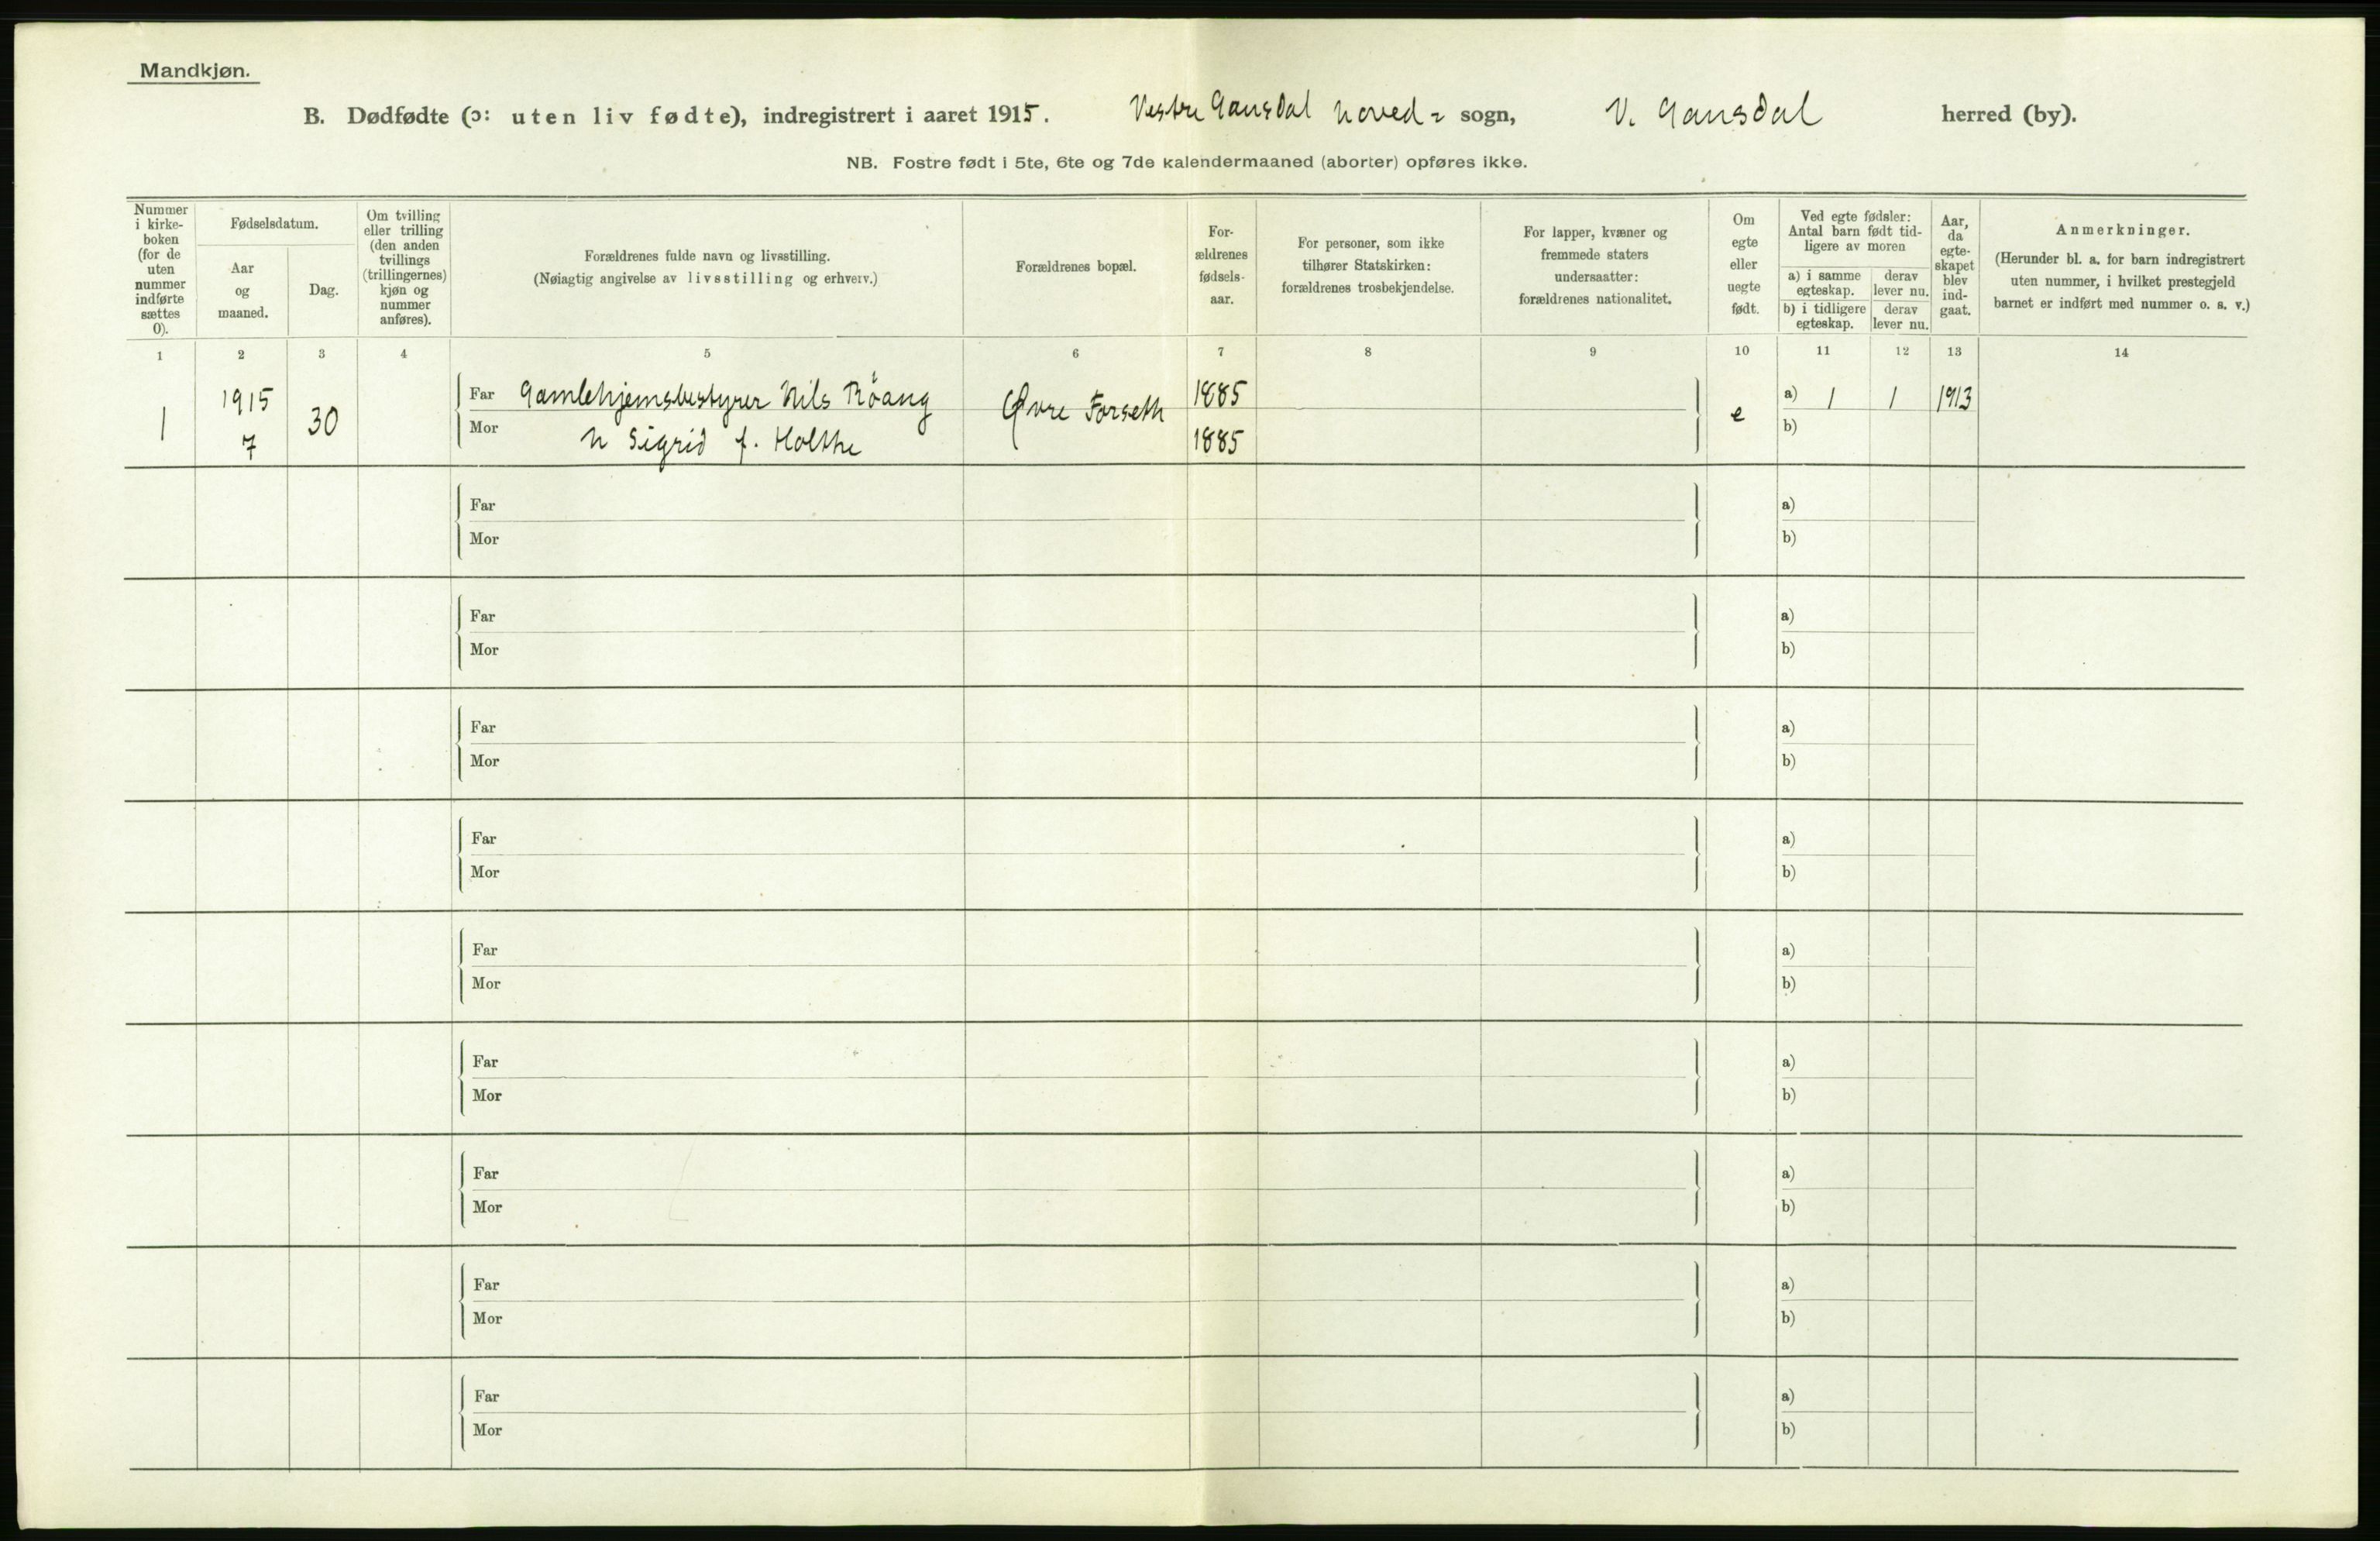 Mandkjøn.
B. Dødfødte (ɔ: uten liv fødte), indregistrert i aaret 1915. Vestre Gausdal hoved- sogn, V. Gausdal herred (by).
NB. Fostre født i 5te, 6te og 7de kalendermaaned (aborter) opføres ikke.
Nummer i kirke- boken (for de uten nummer indførte sættes 0).
Fødselsdatum.
Aar og maaned.
Dag.
Om tvilling eller trilling (den anden tvillings (trillingernes) kjøn og nummer anføres).
Forældrenes fulde navn og livsstilling.
(Nøiagtig angivelse av livsstilling og erhverv.)
Forældrenes bopæl.
For- ældrenes fødsels- aar.
For personer, som ikke tilhører Statskirken: forældrenes trosbekjendelse.
For lapper, kvæner og fremmede staters undersaatter: forældrenes nationalitet.
Om egte eller uegte født.
Ved egte fødsler: Antal barn født tid- ligere av moren
a) i samme egteskap.
derav lever nu.
b) i tidligere egteskap.
derav lever nu.
Aar, da egte- skapet blev ind- gaat.
Anmerkninger.
(Herunder bl. a. for barn indregistrert uten nummer, i hvilket prestegjeld barnet er indført med nummer o. s. v.)
1 2 3 4 5 6 7 8 9 10 11 12 13 14
1 1915 7 30 Far Gamlehjemsbestyrer Nils Röang Øvre Forseth 1885 e a) 1 1 1913
Mor h Sigrid f. Holthe 1885 b)
Far a)
Mor b)
Far a)
Mor b)
Far a)
Mor b)
Far a)
Mor b)
Far a)
Mor b)
Far a)
Mor b)
Far a)
Mor b)
Far a)
Mor b)
Far a)
Mor b)